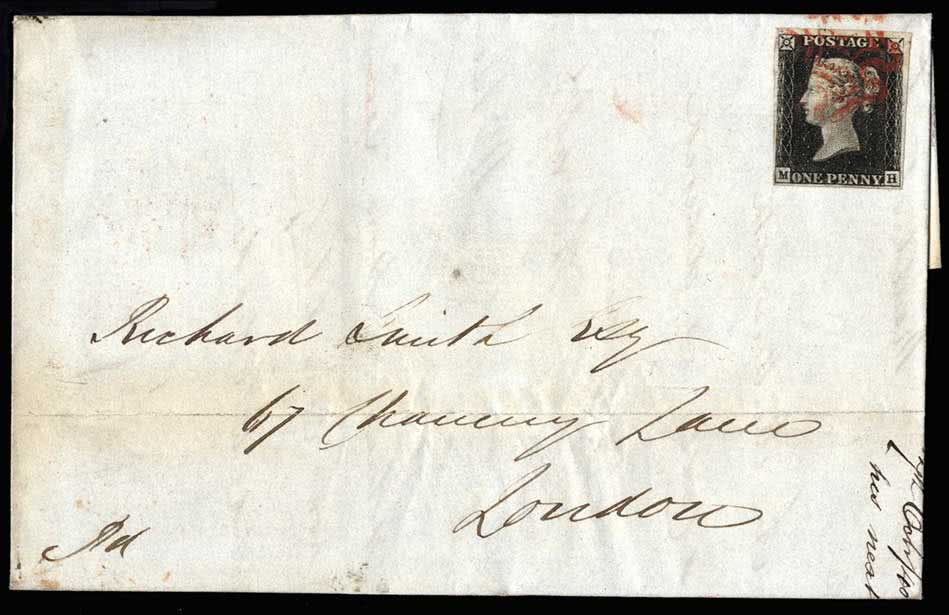 POSTAGE
M ONE PENNY H
Richard Smith Esq
67 Chancery Lane
London
Pd